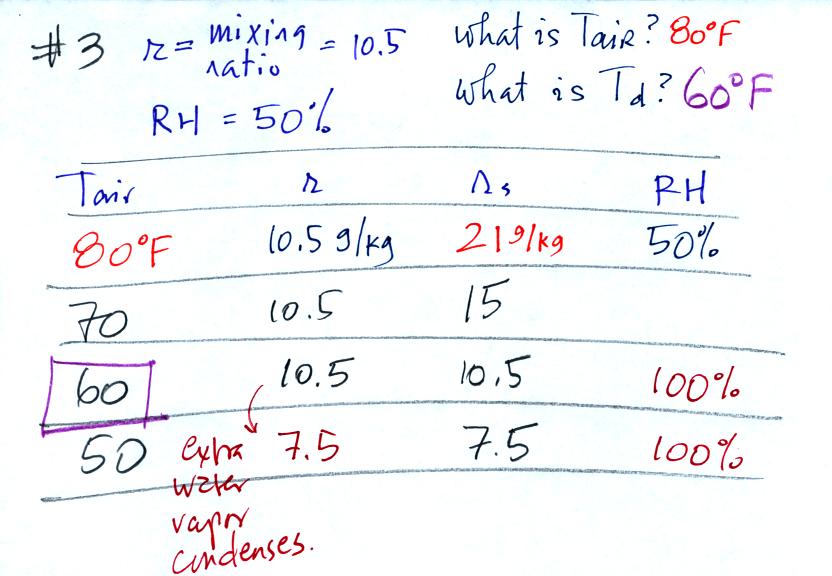 #3 r = mixing ratio = 10.5 what is Tair? 80°F
RH = 50% what is Td? 60°F
Tair r rs RH
80°F 10.5 g/kg 21 g/kg 50%
70 10.5 15
60 10.5 10.5 100%
50 7.5 7.5 100%
extra
water
vapor
condenses.